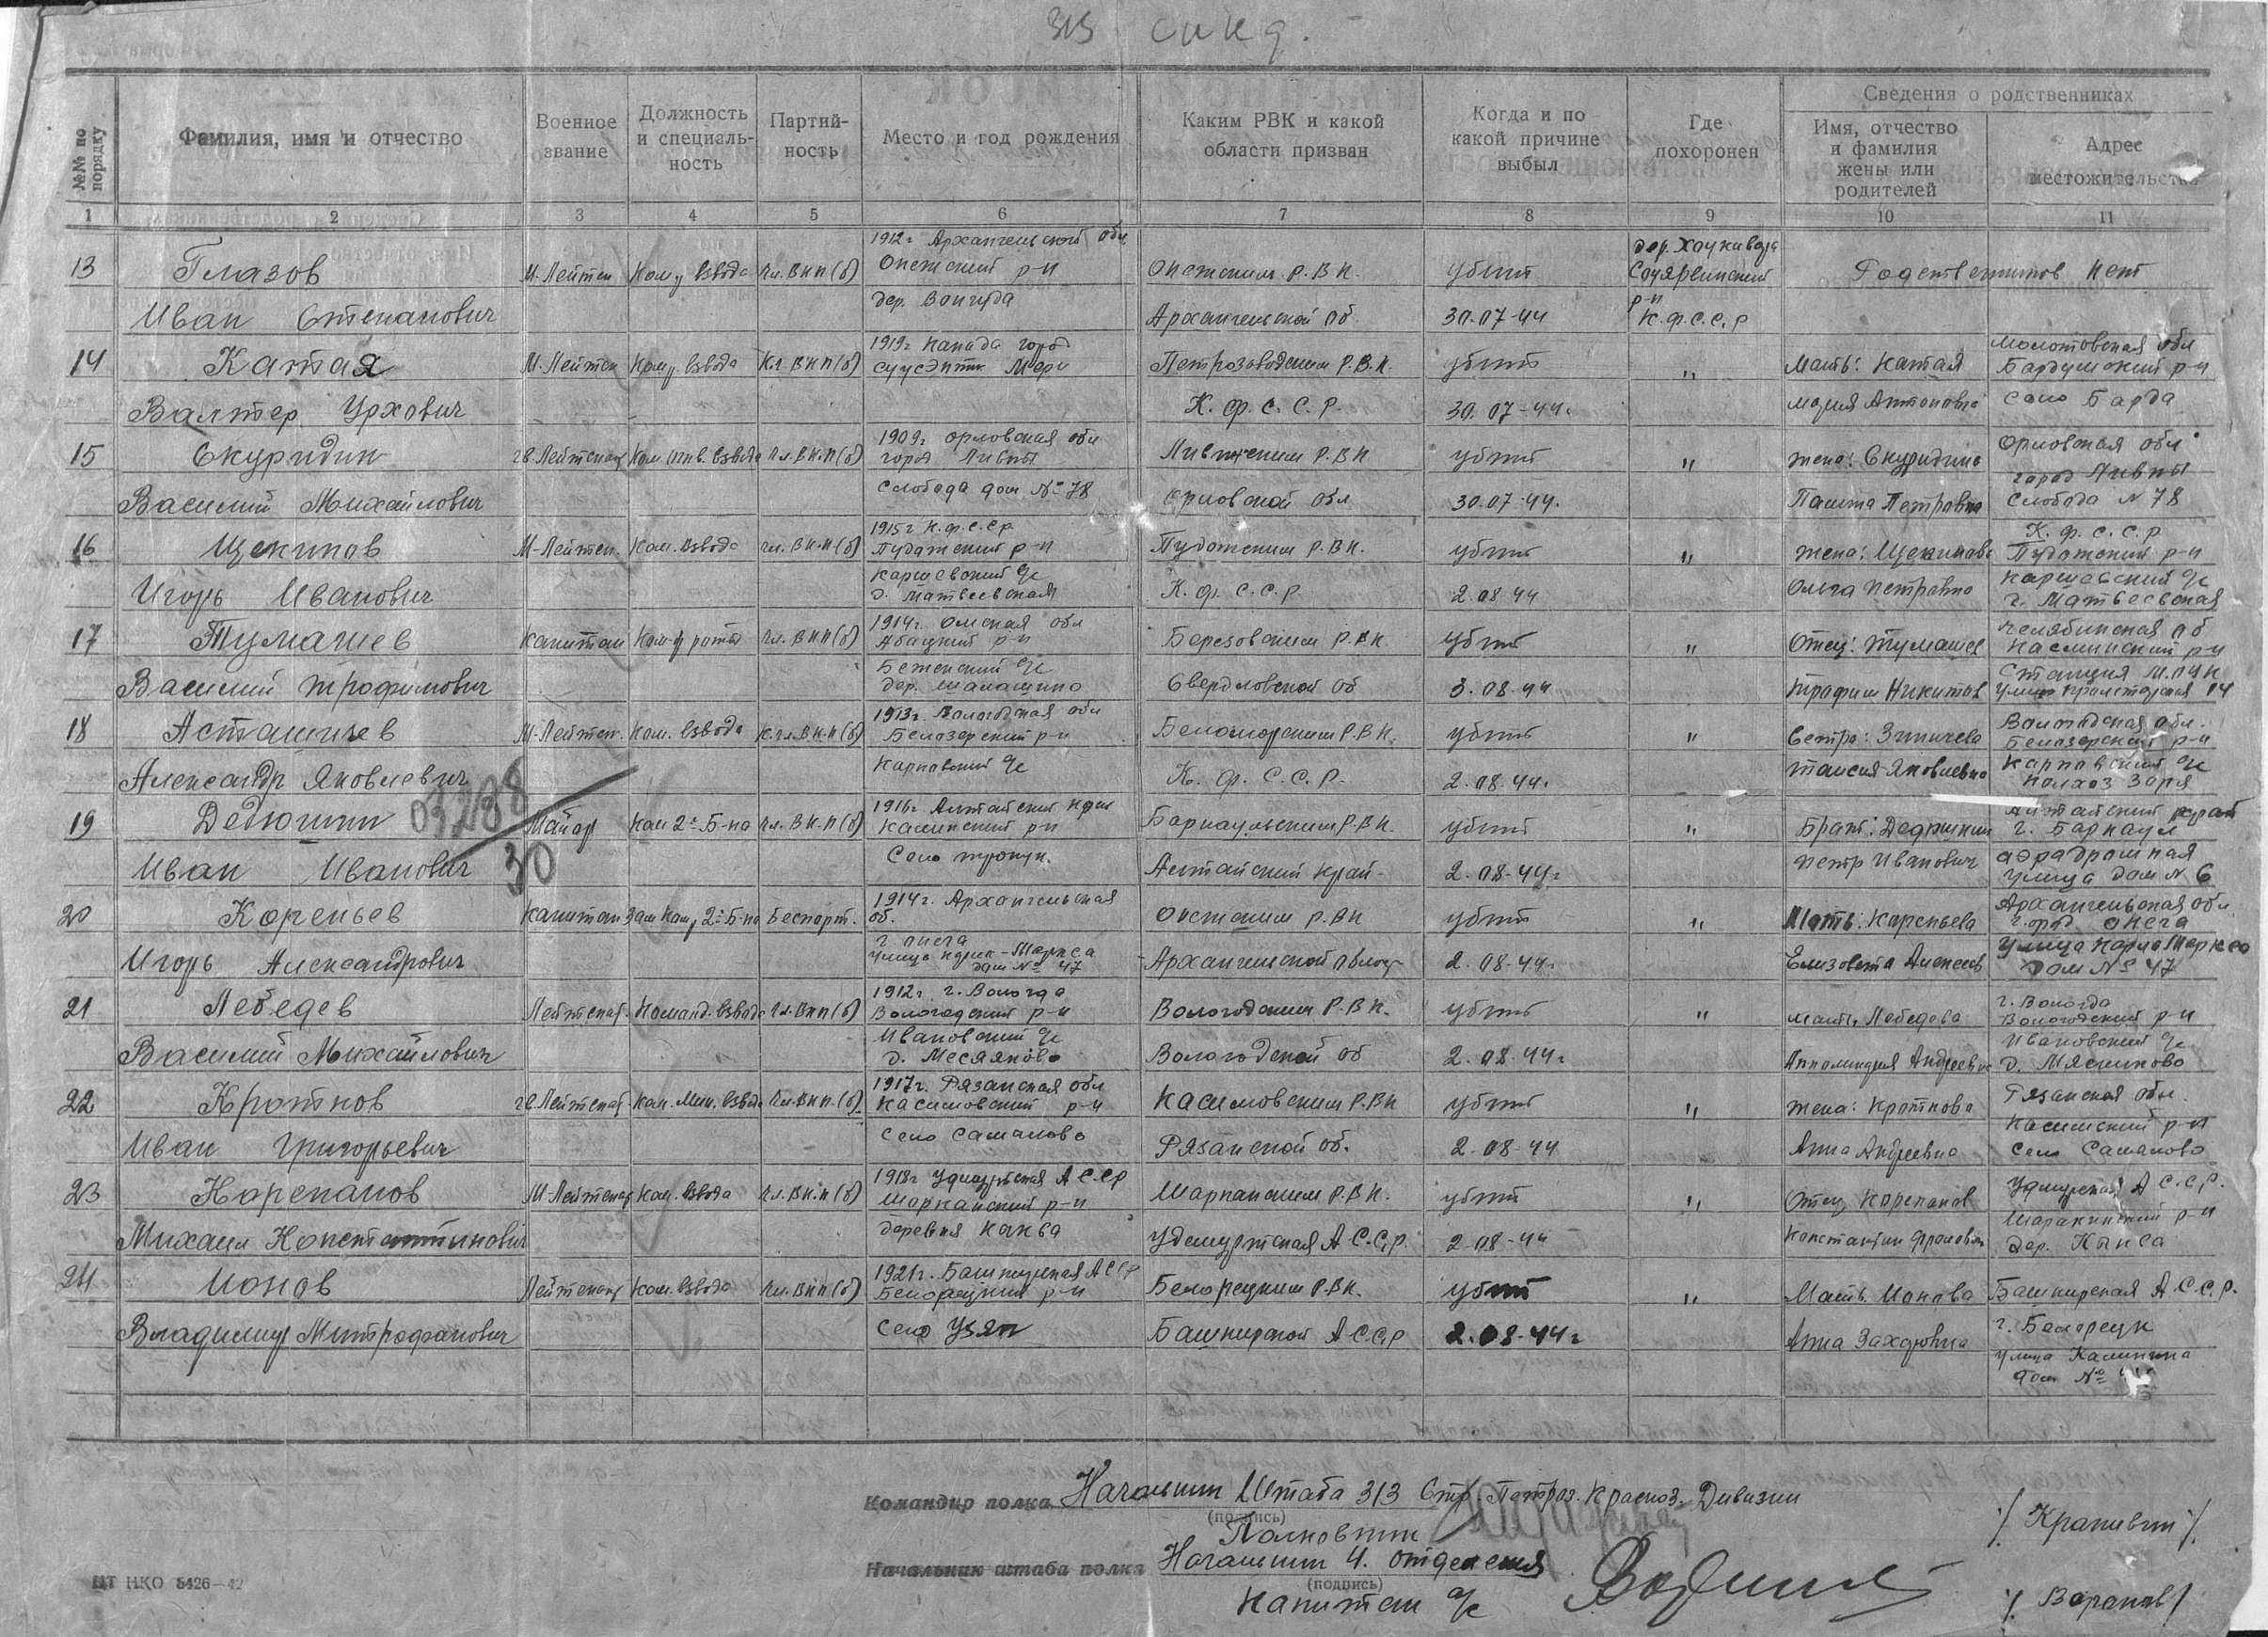 313 сикд.
№№ по порядку
Фамилия, имя и отчество
Военное звание
Должность и специаль-ность
Партий-ность
Место и год рождения
Каким РВК и какой области призван
Когда и по какой причине выбыл
Где похоронен
Сведения о родственниках
Имя, отчество и фамилия жены или родителей
Адрес местожительства
1 2 3 4 5 6 7 8 9 10 11
1912г Архангельской обл дер. Хаукивара
13 Глазов М-Лейтен Ком. взвода чл. ВКП(б) Онежский р-н Онежским Р.В.К. убит Суоярвинский Родственников нет
дер. Вонгуда р-н
Иван Степанович Архангельской об. 30.07-44 К.ф.С.С.Р
1919г Канада город Молотовская обл
14 Катая М.Лейтен Ком. взвода Кл ВКП(б) суусэнтм Мери Петрозаводским Р.В.К. убит " Мать: Катая Бардумский р-н
Валтер Урхович К.ф.С.С.Р. 30.07-44. Мария Антоновна село Барда
1909г Орловская обл Орловская обл
15 Скуридин гв.Лейтенант чл.ВК.П(б) город Ливны Ливенским Р.ВК убит " жена: Скуридина город Ливны
Василий Михайлович Слобода дом № 78 Орловской обл 30.07-44. Петровна Слобода N 78
1915г К.ф.С.СР. К.ф.С.С.Р
16 Щекинов М-Лейтен. Ком. взвода чл. ВК.П(б) Пудожский р-н Пудожским Р.ВК. убит " жена: Щекинова Пудожский р-н
Каршевский с/с Каршевский с/с
Игорь Иванович д. Матвеевская К.ф.С.С.Р 2.08 44 Ольга Петровна Матвеевская
1914г. Омская обл Челябинская об
17 Тумашев Капитан Ком-р роты чл.ВКП(б) Абацкий р-н Березовским Р.В.К. убит " Отец: Тумашев Каслинский р-н
с/с станция
Василий Трофимович дер. Шалашино Свердловской об 3.08-44 Трофим Никитов улица Пролетарская 14
1913г. Вологодская обл Вологодская обл.
18 Асташичев М-Лейтен. Ком. взвода К.чл.ВК.П(б) Белозерский р-н Беломорским Р.В.К. убит " Сестра: Зиничева Белозерский р-н
Карповский с/с Карповский с/с
Александр Яковлевич К.ф.С.С.Р. 2.08.44. Таисия Яковлевна колхоз Заря
03238
1916г Алтайский край Алтайский край
19 Дедюшин Майор Ком 2г Б-на чл. ВК.П(б) р-н Барнаульским Р.В.К. убит " Брат: Дедюшкин г. Барнаул
Село аэродромная
Иван Иванович 30 Алтайский край 2-08-44г Петр Иванович улица дом N 6
1914г. Архангельская Архангельская обл
20 Кореньев Капитан Зам Ком, 2г Б-на Беспарт. об. Онежским Р.ВК убит " Мать: Кореньева город Онега
г. Онега улица Карла Маркса
улица Карла-Маркса
Игорь Александрович дом № 47 Архангельской област 2-08-44г Елизовета Алексеев дом № 47
1912г. г. Вологда г. Вологда
21 Лебедев Лейтенант Команд. взвода чл.ВКП(б) Вологодский р-н Вологодским Р.ВК. убит " мать Лебедева Вологодский р-н
Ивановский с/с Ивановский с/с
Василий Михайлович д. Месяяново Вологодской об 2.08-44г Андреевна д. Мясниково
1917г. Рязанская обл Рязанская обл.
22 Кротков гв.Лейтенант Ком. Мин. взвода чл.ВКП.(б). Касимовский р-н Касимовским Р.ВК убит " жена: Кроткова р-н
Иван Григорьевич Село Самалово Рязанской об. 2-08-44 Анна Андреевна село Самалово
1918г Удмуртская АССР Удмурская АС.С.Р.
23 Корепанов М-Лейтенант Ком. взвода чл.ВК.П(б) Шарканский р-н Шарканским Р.ВК. убит " Отец Корепанов р-н
деревня Каква
Михаил Константинович Удемуртская АС.С.Р. 2.08-44 Константин дер.
1921г. Башкирская АССР
24 Ионов Лейтенант Ком. взвода чл.ВКП(б) Белорецкий р-н Белорецким Р.ВК. убит " Мать Ионова Башкирская А.С.С.Р.
г. Белорецк
Владимир Митрофанович Село Узян Башкирской А.С.С.Р 2.08-44г Анна
улица Калинина
дом №
Командир полка Начальник Штаба 313 Стр. Петроз. Красноз. Дивизии
(подпись)
Полковник /Крапивин/
Начальник штаба полка Начальник 4. отделения
(подпись)
Капитан а/с /Воронов/
ЦТ НКО 5426—42